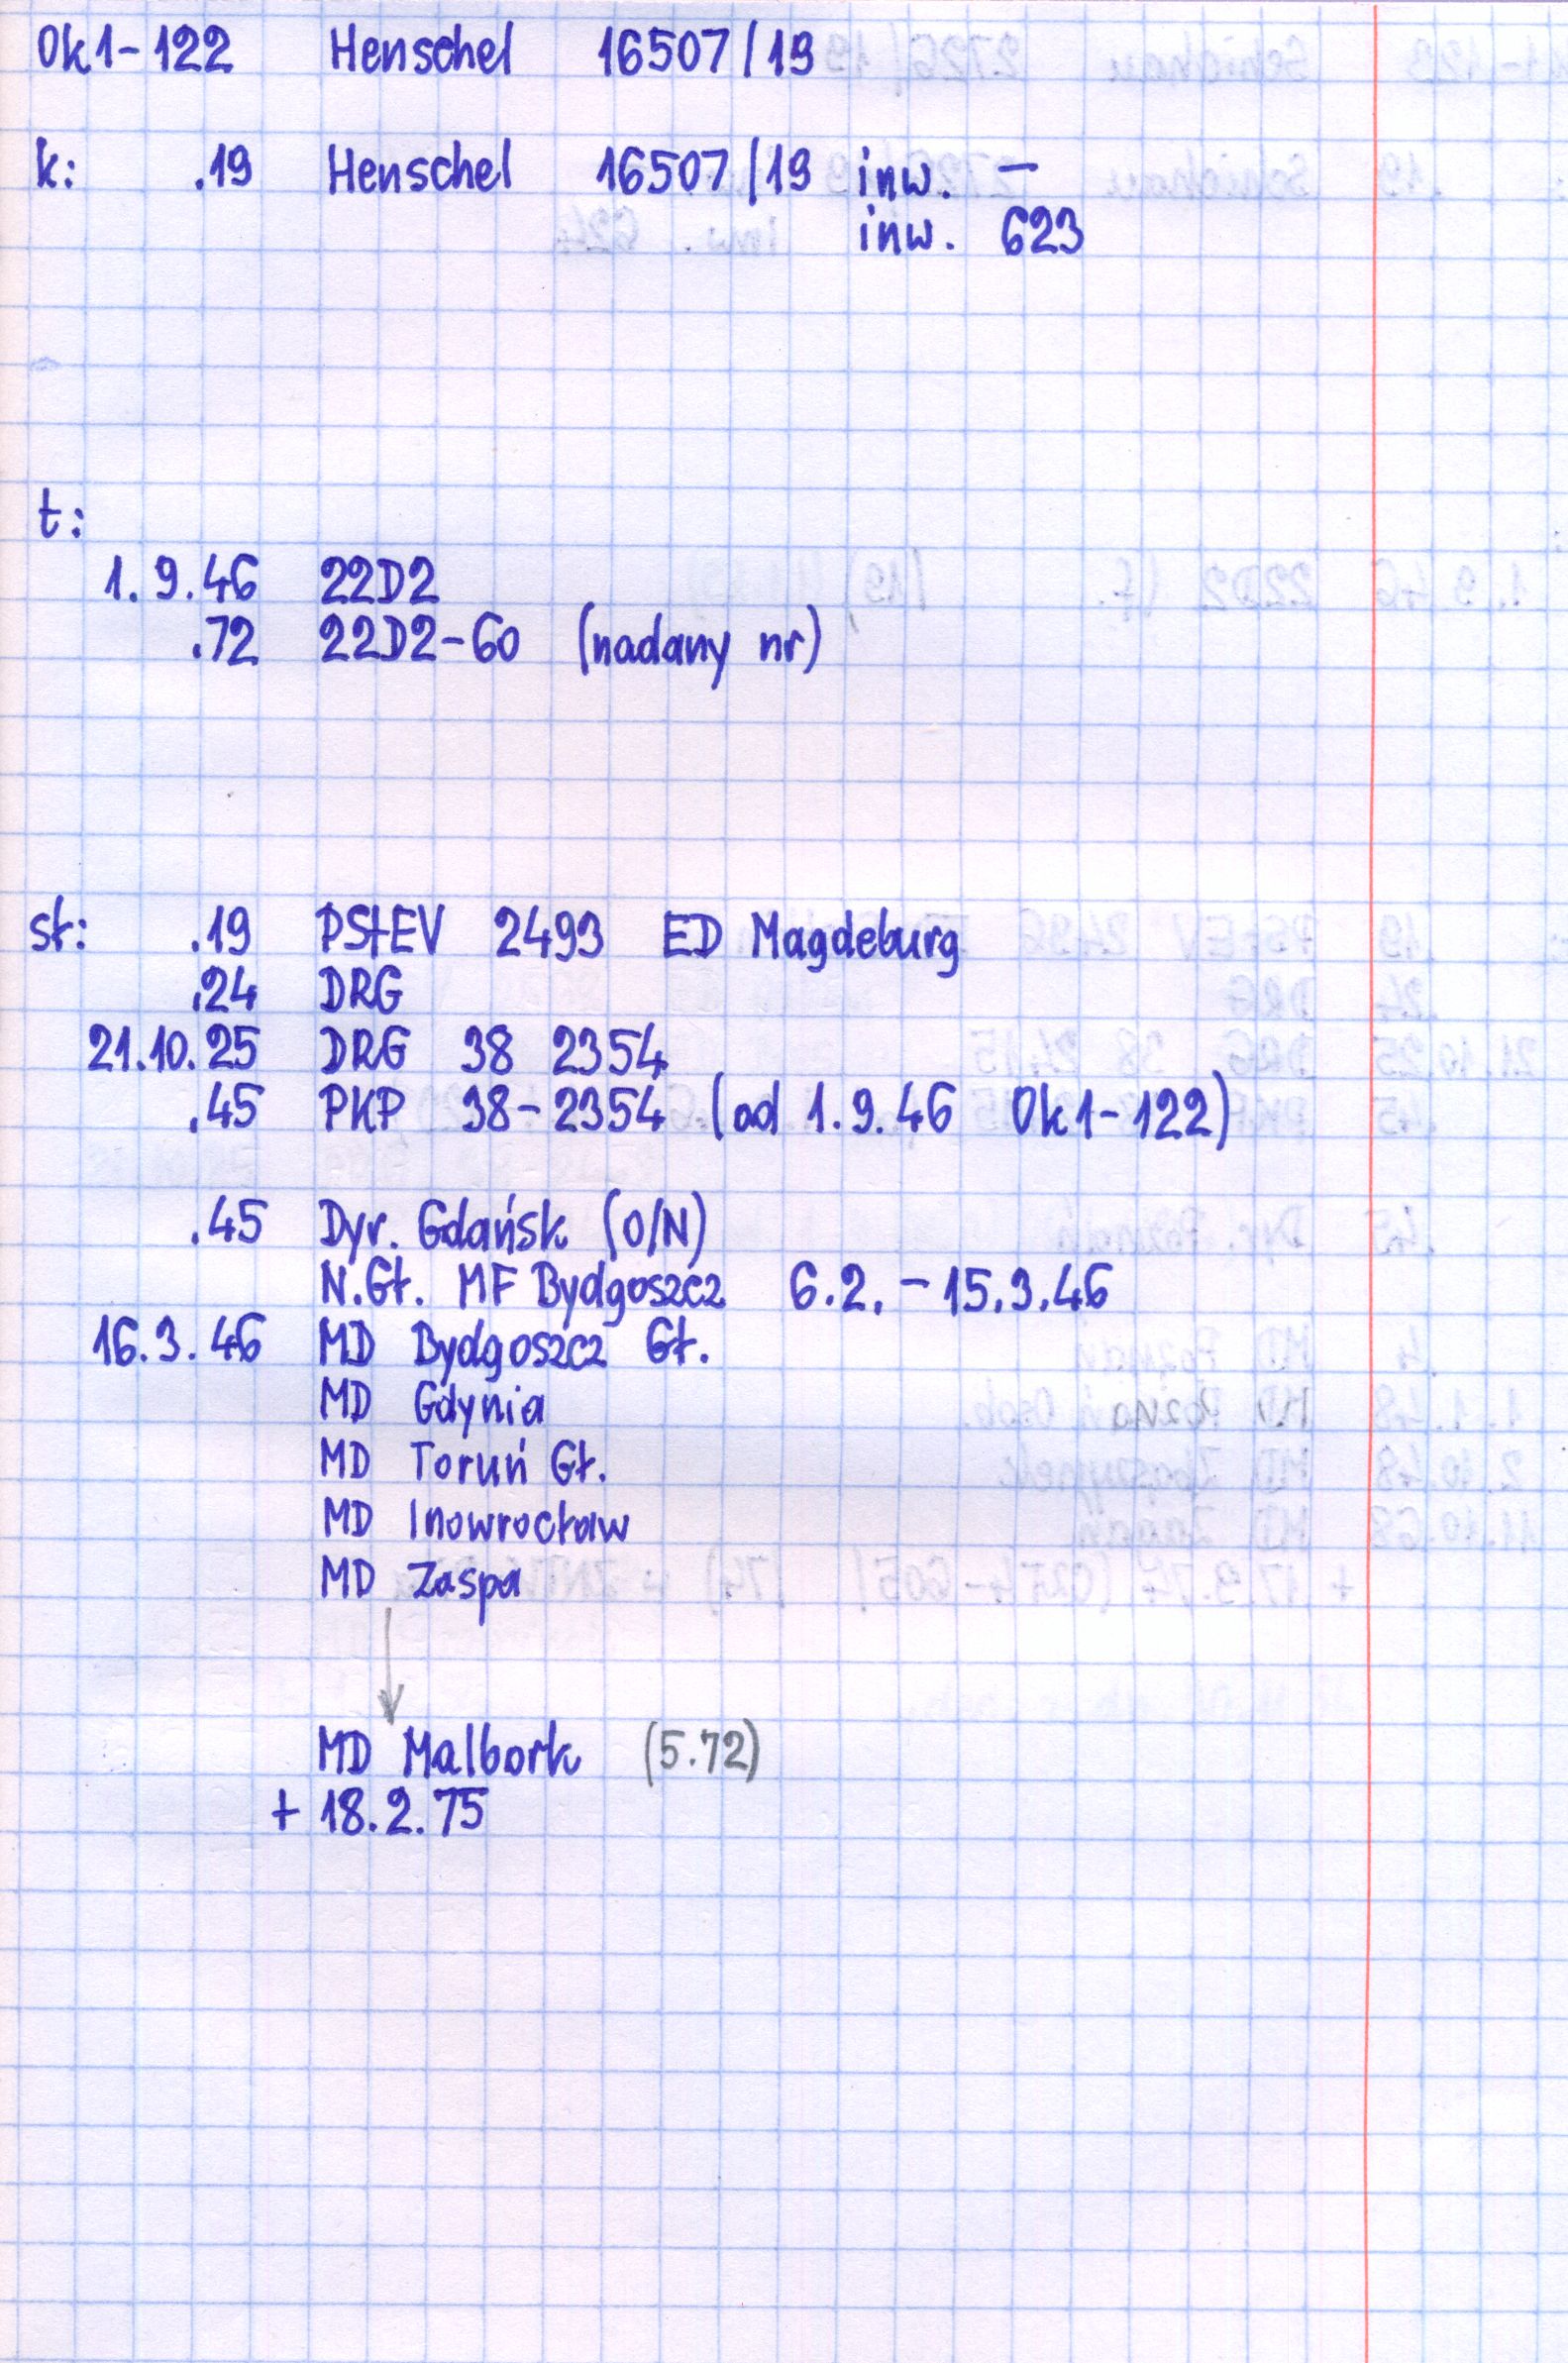 Ok1-122 Henschel 16507/19
k: .19 Henschel 16507/19 inw. —
inw. 623
t:
1.9.46 22D2
.72 22D2-60 (nadany nr)
st: .19 PStEV 2493 ED Magdeburg
.24 DRG
21.10.25 DRG 38 2354
.45 PKP 38-2354 (od 1.9.46 Ok1-122)
.45 Dyr. Gdańsk (O/N)
N.Gł. MF Bydgoszcz 6.2.-15.3.46
16.3.46 MD Bydgoszcz Gł.
MD Gdynia
MD Toruń Gł.
MD Inowrocław
MD Zaspa
MD Malbork (5.72)
+ 18.2.75